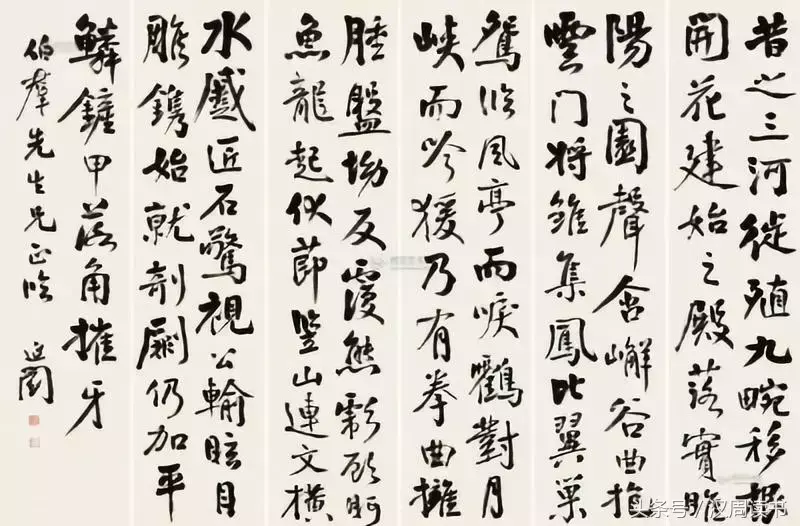 昔之三河徙殖九畹移根
開花建始之殿落實睢
陽之園聲含嶰谷曲抱
雲门將雛集鳳比翼巢
鴛臨風亭而唳鶴對月
峽而吟猨乃有拳曲擁
腫盤坳反覆熊彪顧盻
魚龍起伏節豎山連文橫
水蹙匠石驚視公輸眩目
雕鐫始就剞劂仍加平
鱗鏟甲落角摧牙
伯羣先生兄正臨 延闓
头条号/汉周读书